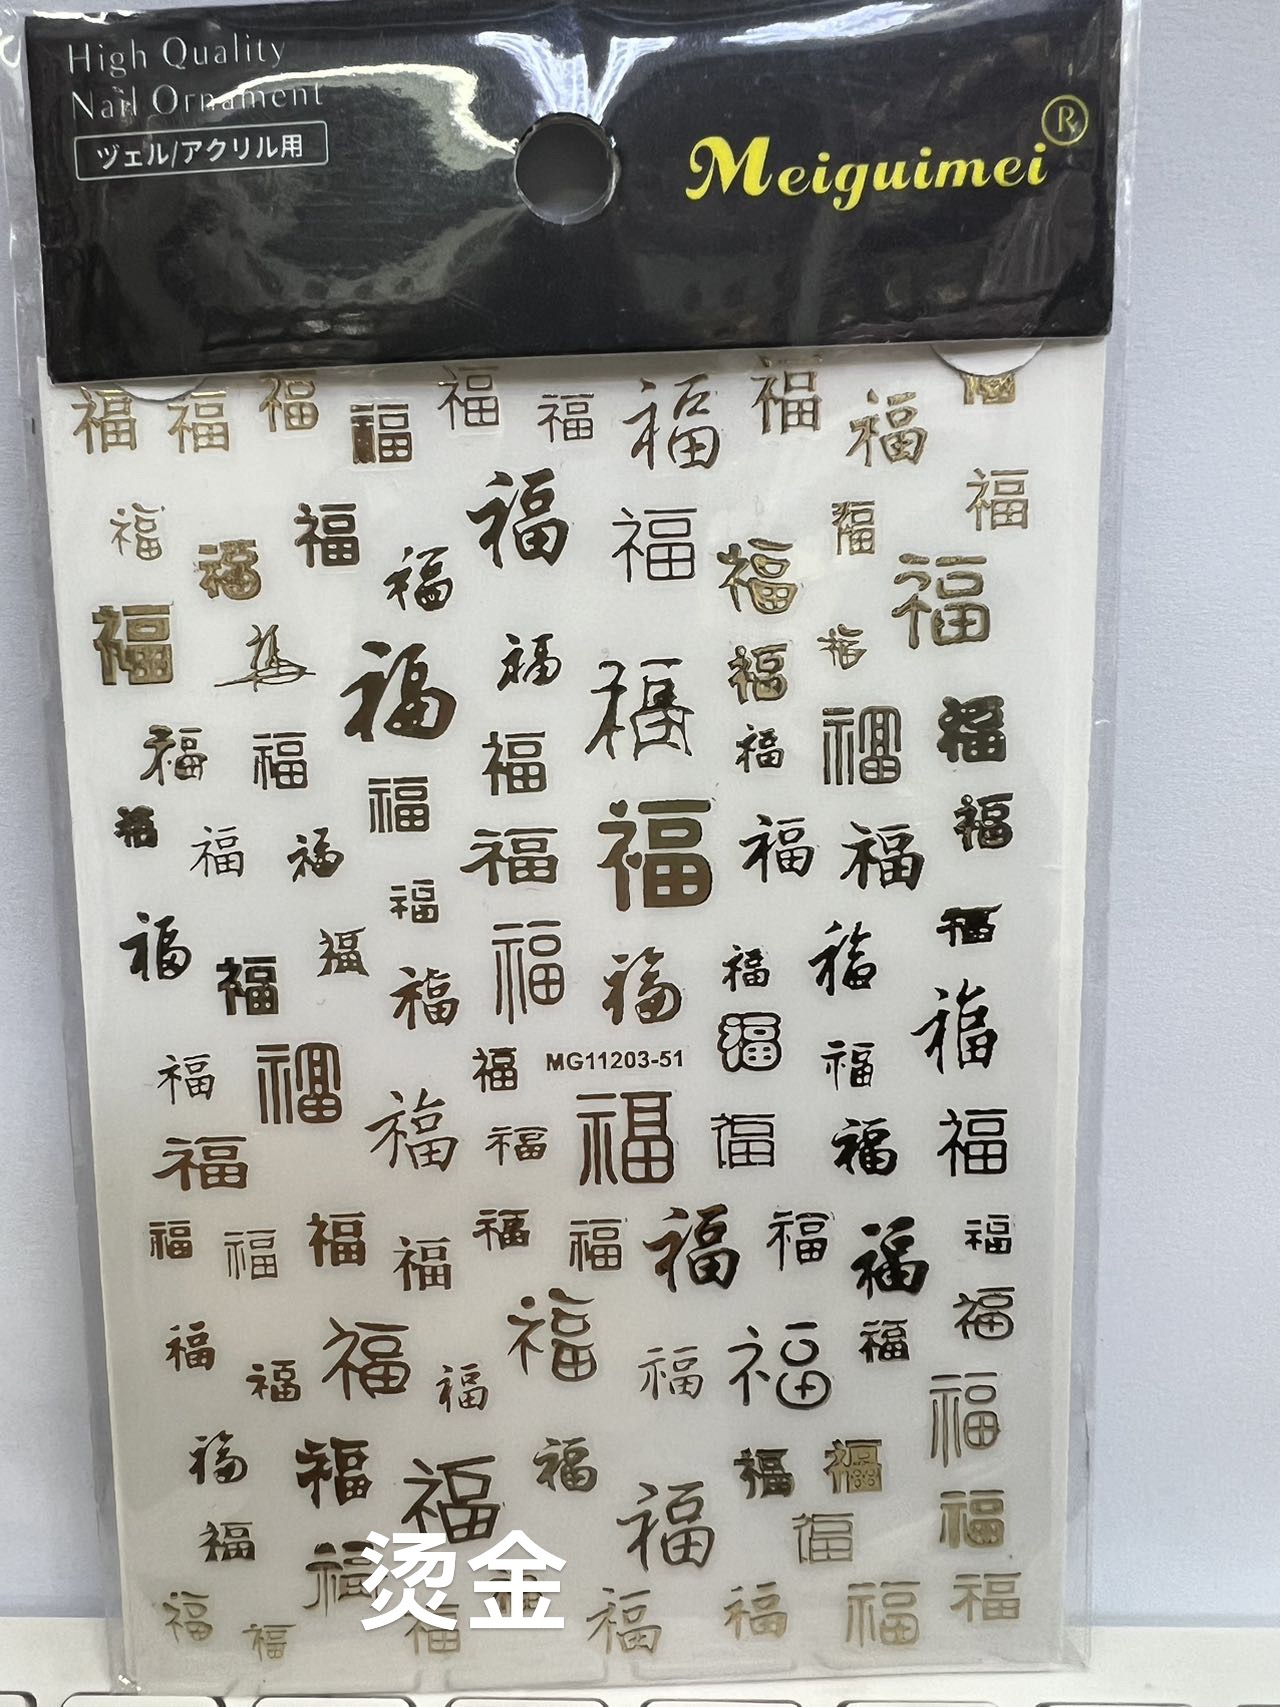 High Quality
Nail Ornament
ヅェル/アクリル用
Meiguimei®
福 福 福 福 福 福 福 福 福 福
福 福 福 福 福 福
福 福 福 福
福 福 福 福 福 福 福
福 福 福 福 福 福
福 福 福 福 福 福 福 福 福
福 福 福 福 福 福 福
福 福 福 福
福 福 福 MG11203-51 福 福
福 福 福 福 福 福 福
福 福 福 福 福 福 福 福 福 福
福 福 福 福 福 福 福 福 福
福 福 福 福 福 福 福
福 福 福 福 福
烫金
福 福 福 福 福 福 福 福